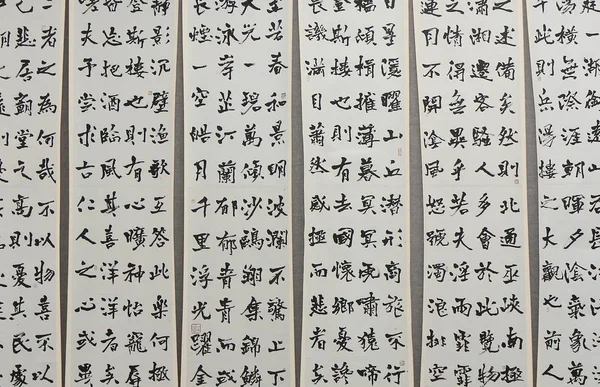 湯橫無際涯朝暉夕陰氣象萬
此則岳陽樓之大觀也前人
之述備矣然則北通巫峽南極
瀟湘遷客騷人多會於此覽物
之情得無異乎若夫淫雨霏
連月不開陰風怒號濁浪排
隱曜山丘潛形商旅不行
傾楫摧薄暮冥冥虎嘯猿啼
登斯樓也則有去國懷鄉憂讒
畏譏滿目蕭然感極而悲者矣
若春和景明波瀾不驚上下
天光一碧萬頃沙鷗翔集錦鱗
游泳岸芷汀蘭郁郁青青而或
長煙一空皓月千里浮光躍金
靜影沉璧漁歌互答此樂何極
登斯樓也則有心曠神怡寵辱
皆忘把酒臨風其喜洋洋者矣
嗟夫予嘗求古仁人之心或異
二者之為何哉不以物喜不以
己悲居廟堂之高則憂其民處